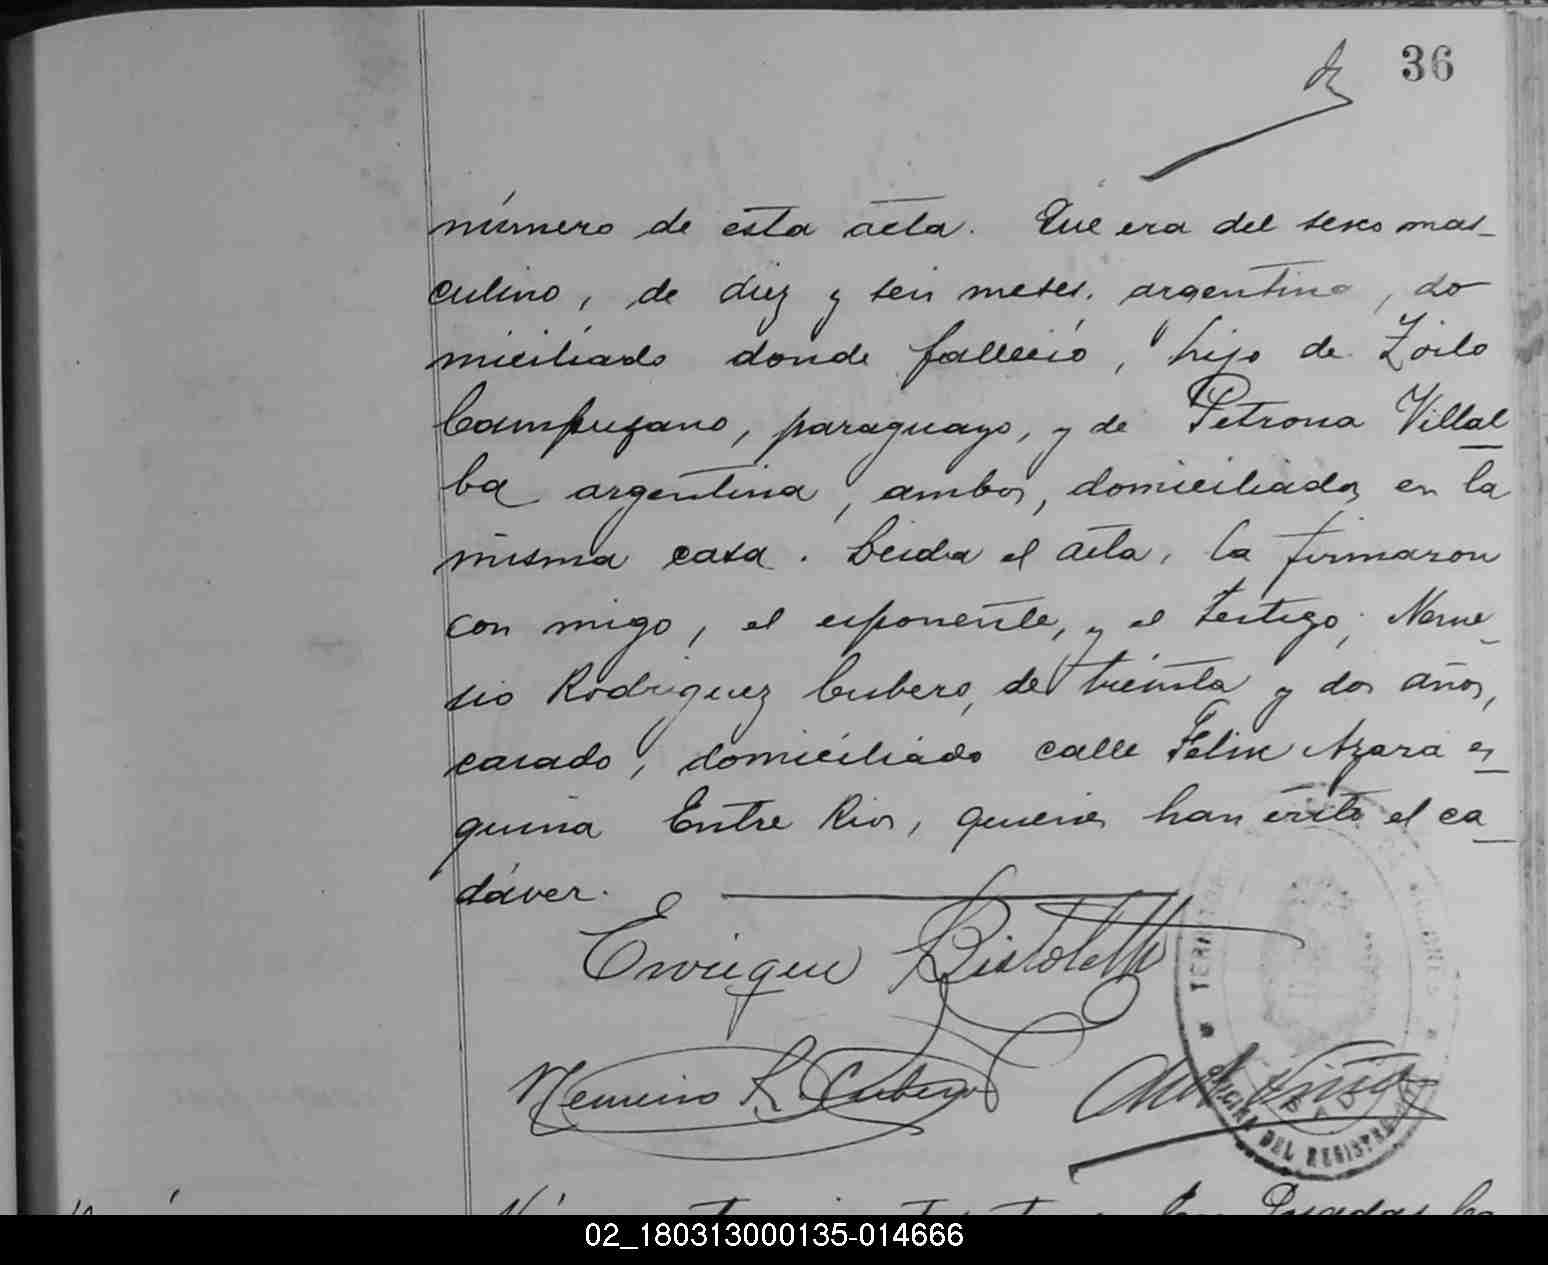 36
número de esta acta. Que era del sexo mas-
culino, de diez y seis meses, argentino, do
miciliado donde falleció, hijo de Zoilo
Campuzano, paraguayo, y de Petrona Villal
ba argentina, ambos, domiciliados en la
misma casa. Leida el acta, la firmaron
con migo, el esponente, y el testigo, Neme-
sio Rodriguez Cubero, de treinta y dos años,
casado, domiciliado calle Felix Azara es
quina Entre Rios, quienes han visto el ca
dáver.
Enrique Bistoletti
Nemesio R. Cubero
OFICINA DEL REGISTRO
02_180313000135-014666